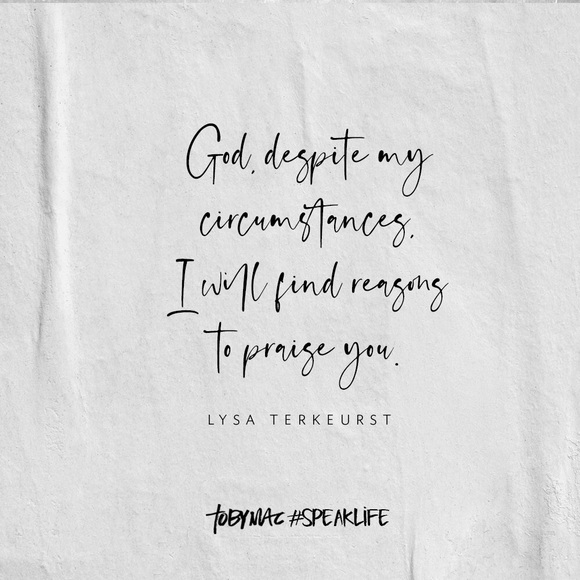 God, despite my
circumstances,
I will find reasons
to praise you.
LYSA TERKEURST
TOBYMAC #SPEAKLIFE